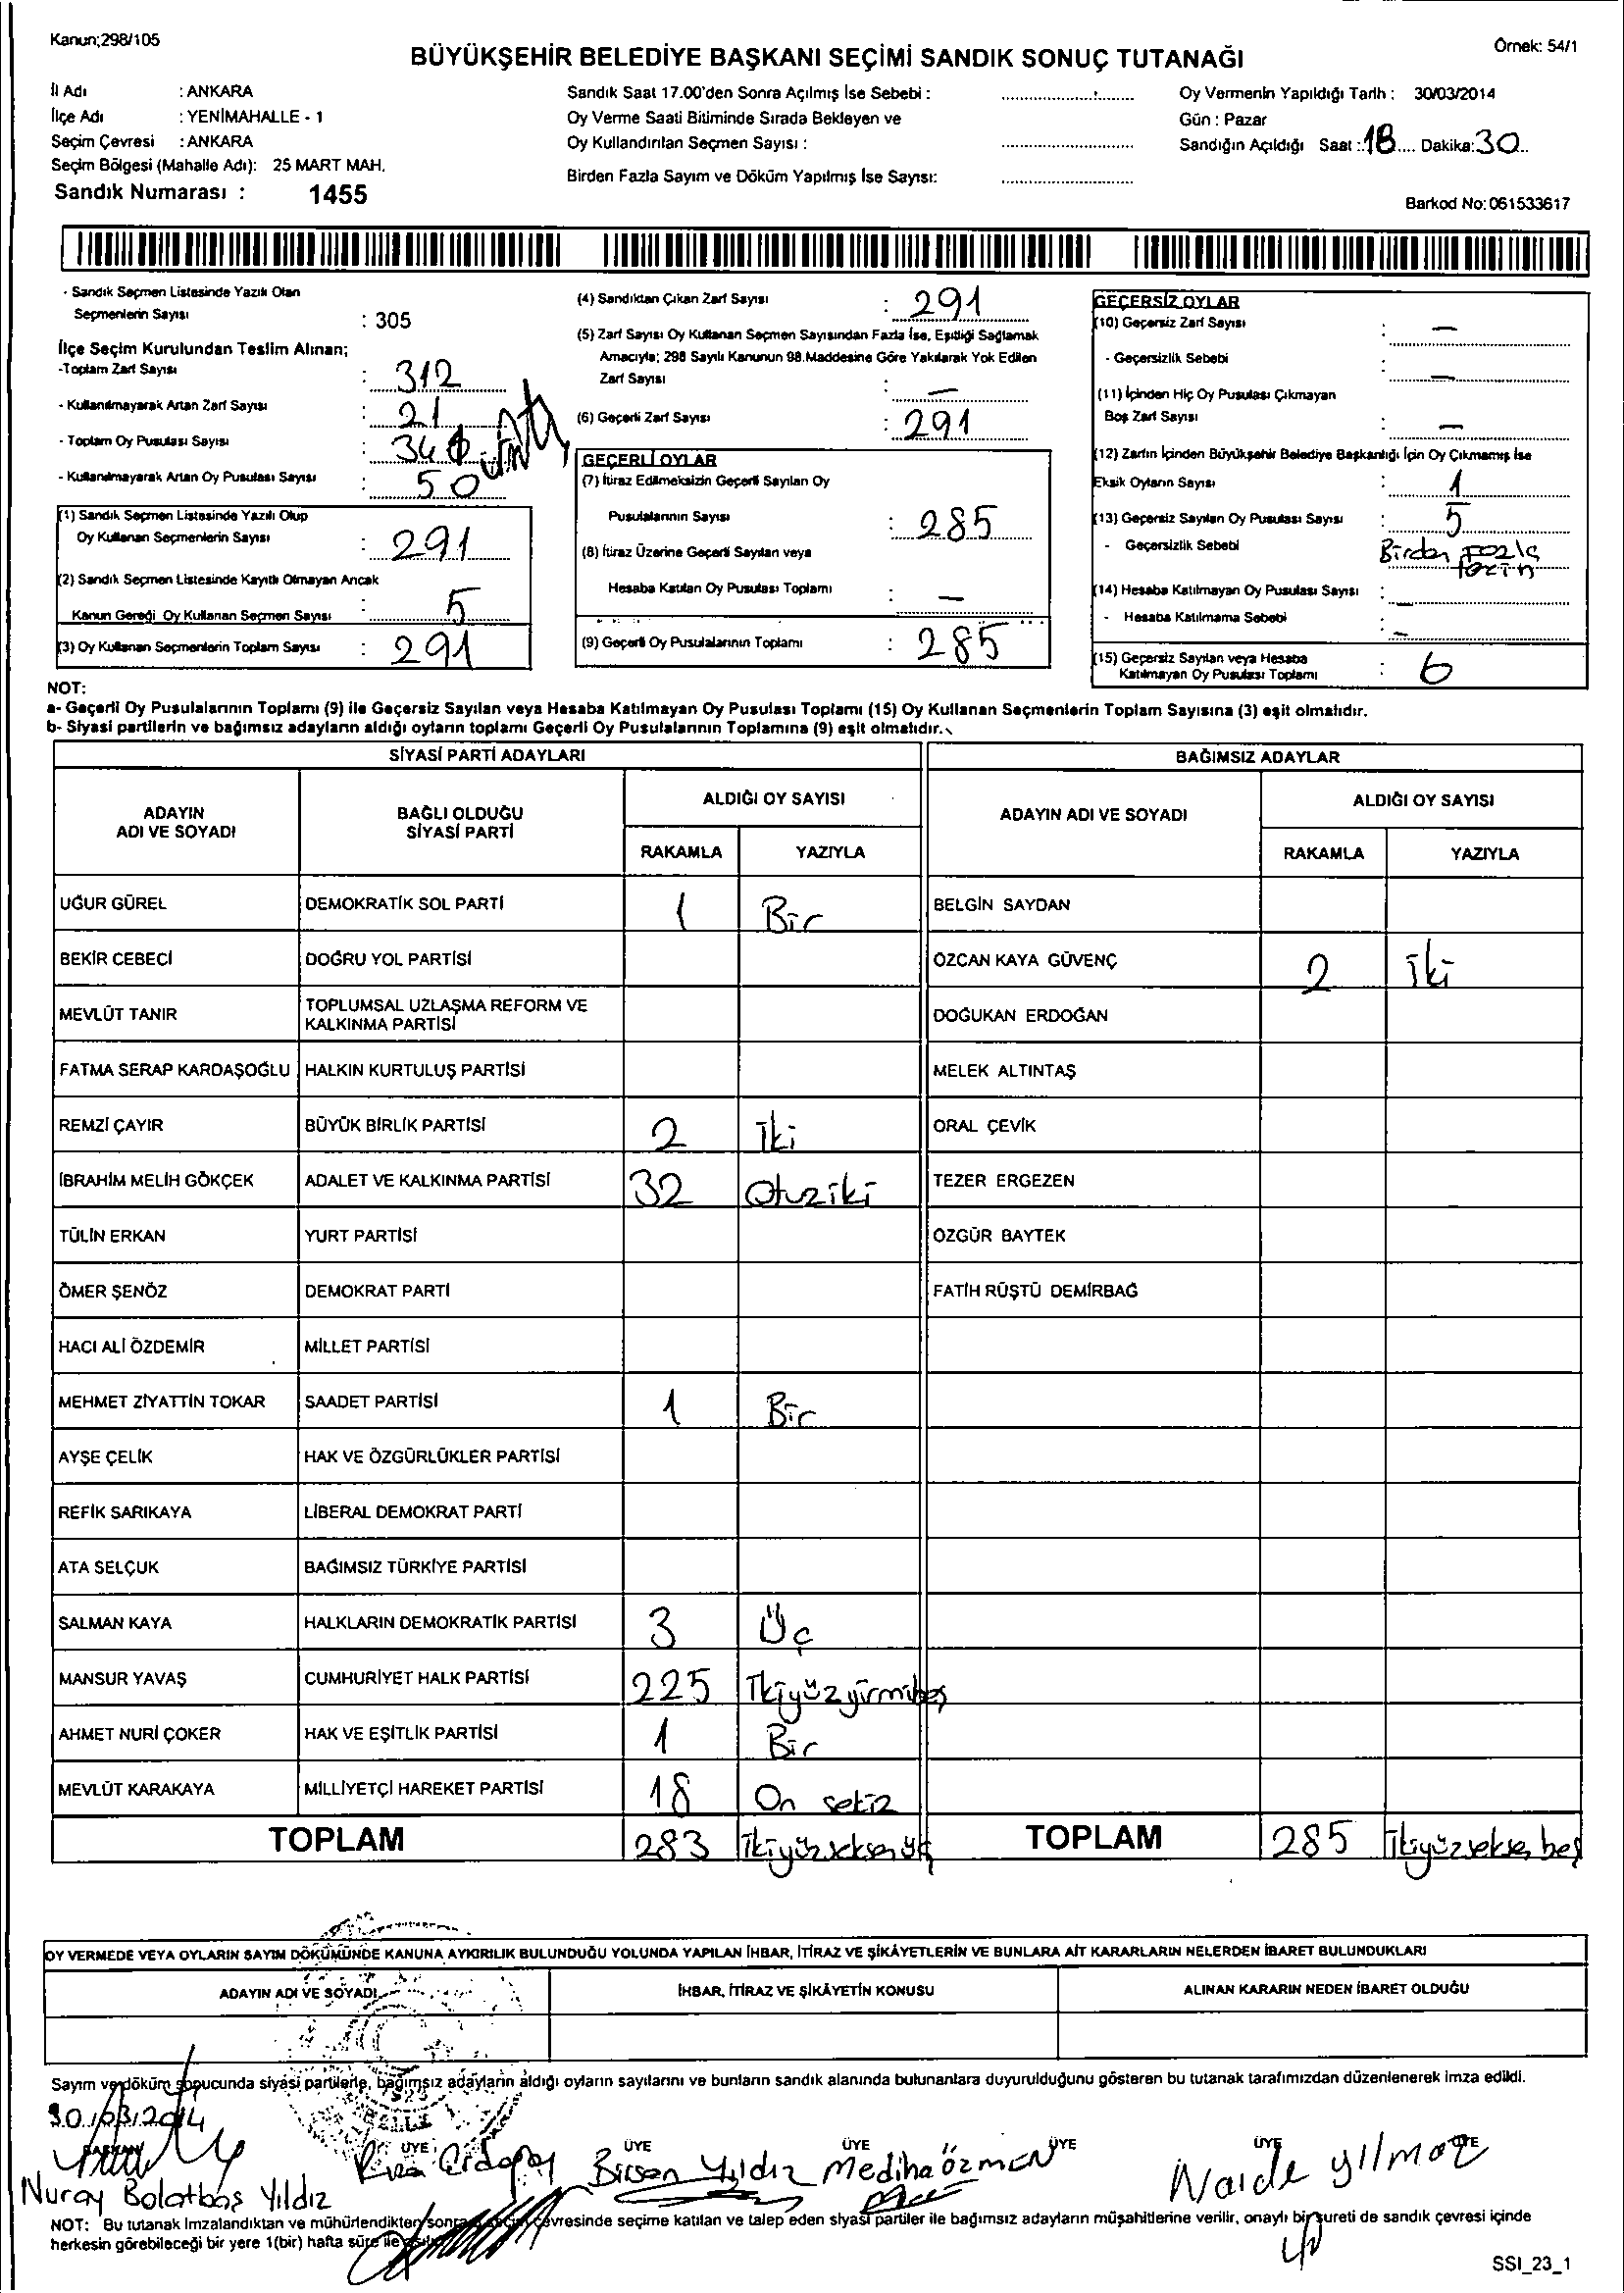 Kanun;298/105
BÜYÜKŞEHİR BELEDİYE BAŞKANI SEÇİMİ SANDIK SONUÇ TUTANAĞI
Örnek: 54/1
İl Adı : ANKARA
İlçe Adı : YENİMAHALLE - 1
Seçim Çevresi : ANKARA
Seçim Bölgesi (Mahalle Adı): 25 MART MAH.
Sandık Numarası : 1455
Sandık Saat 17.00'den Sonra Açılmış İse Sebebi :
Oy Verme Saati Bitiminde Sırada Bekleyen ve
Oy Kullandırılan Seçmen Sayısı :
Birden Fazla Sayım ve Döküm Yapılmış İse Sayısı:
Oy Vermenin Yapıldığı Tarih : 30/03/2014
Gün : Pazar
Sandığın Açıldığı Saat : 18 Dakika: 30
Barkod No: 061533617
- Sandık Seçmen Listesinde Yazılı Olan
Seçmenlerin Sayısı : 305
İlçe Seçim Kurulundan Teslim Alınan;
-Toplam Zarf Sayısı : 312
- Kullanılmayarak Artan Zarf Sayısı : 21
- Toplam Oy Pusulası Sayısı : 340
- Kullanılmayarak Artan Oy Pusulası Sayısı : 50
(1) Sandık Seçmen Listesinde Yazılı Olup
Oy Kullanan Seçmenlerin Sayısı : 291
(2) Sandık Seçmen Listesinde Kayıtlı Olmayan Ancak
Kanun Gereği Oy Kullanan Seçmen Sayısı : 5
(3) Oy Kullanan Seçmenlerin Toplam Sayısı : 291
(4) Sandıktan Çıkan Zarf Sayısı : 291
(5) Zarf Sayısı Oy Kullanan Seçmen Sayısından Fazla İse, Eşitliği Sağlamak
Amacıyla; 298 Sayılı Kanunun 98.Maddesine Göre Yakılarak Yok Edilen
Zarf Sayısı : —
(6) Geçerli Zarf Sayısı : 291
GEÇERLİ OYLAR
(7) İtiraz Edilmeksizin Geçerli Sayılan Oy
Pusulalarının Sayısı : 285
(8) İtiraz Üzerine Geçerli Sayılan veya
Hesaba Katılan Oy Pusulası Toplamı : —
(9) Geçerli Oy Pusulalarının Toplamı : 285
GEÇERSİZ OYLAR
(10) Geçersiz Zarf Sayısı : —
- Geçersizlik Sebebi : —
(11) İçinden Hiç Oy Pusulası Çıkmayan
Boş Zarf Sayısı : —
(12) Zarfın İçinden Büyükşehir Belediye Başkanlığı İçin Oy Çıkmamış İse
Eksik Oyların Sayısı : 1
(13) Geçersiz Sayılan Oy Pusulası Sayısı : 5
- Geçersizlik Sebebi Birden Fazla
(14) Hesaba Katılmayan Oy Pusulası Sayısı : —
- Hesaba Katılmama Sebebi : —
(15) Geçersiz Sayılan veya Hesaba
Katılmayan Oy Pusulası Toplamı : 6
NOT:
a- Geçerli Oy Pusulalarının Toplamı (9) ile Geçersiz Sayılan veya Hesaba Katılmayan Oy Pusulası Toplamı (15) Oy Kullanan Seçmenlerin Toplam Sayısına (3) eşit olmalıdır.
b- Siyasi partilerin ve bağımsız adayların aldığı oyların toplamı Geçerli Oy Pusulalarının Toplamına (9) eşit olmalıdır.
SİYASİ PARTİ ADAYLARI
BAĞIMSIZ ADAYLAR
ADAYIN ADI VE SOYADI
BAĞLI OLDUĞU SİYASİ PARTİ
ALDIĞI OY SAYISI
RAKAMLA YAZIYLA
ADAYIN ADI VE SOYADI
ALDIĞI OY SAYISI
RAKAMLA YAZIYLA
UĞUR GÜREL DEMOKRATİK SOL PARTİ 1 Bir BELGİN SAYDAN
BEKİR CEBECİ DOĞRU YOL PARTİSİ ÖZCAN KAYA GÜVENÇ 2 İki
MEVLÜT TANIR TOPLUMSAL UZLAŞMA REFORM VE KALKINMA PARTİSİ DOĞUKAN ERDOĞAN
FATMA SERAP KARDAŞOĞLU HALKIN KURTULUŞ PARTİSİ MELEK ALTINTAŞ
REMZİ ÇAYIR BÜYÜK BİRLİK PARTİSİ 2 İki ORAL ÇEVİK
İBRAHİM MELİH GÖKÇEK ADALET VE KALKINMA PARTİSİ 32 Otuziki TEZER ERGEZEN
TÜLİN ERKAN YURT PARTİSİ ÖZGÜR BAYTEK
ÖMER ŞENÖZ DEMOKRAT PARTİ FATİH RÜŞTÜ DEMİRBAĞ
HACI ALİ ÖZDEMİR MİLLET PARTİSİ
MEHMET ZİYATTİN TOKAR SAADET PARTİSİ 1 Bir
AYŞE ÇELİK HAK VE ÖZGÜRLÜKLER PARTİSİ
REFİK SARIKAYA LİBERAL DEMOKRAT PARTİ
ATA SELÇUK BAĞIMSIZ TÜRKİYE PARTİSİ
SALMAN KAYA HALKLARIN DEMOKRATİK PARTİSİ 3 Üç
MANSUR YAVAŞ CUMHURİYET HALK PARTİSİ 225 İkiyüzyirmibeş
AHMET NURİ ÇOKER HAK VE EŞİTLİK PARTİSİ 1 Bir
MEVLÜT KARAKAYA MİLLİYETÇİ HAREKET PARTİSİ 18 On sekiz
TOPLAM 283 İkiyüzseksenüç TOPLAM 285 İkiyüzseksenbeş
OY VERMEDE VEYA OYLARIN SAYIM DÖKÜMÜNDE KANUNA AYKIRILIK BULUNDUĞU YOLUNDA YAPILAN İHBAR, İTİRAZ VE ŞİKÂYETLERİN VE BUNLARA AİT KARARLARIN NELERDEN İBARET BULUNDUKLARI
ADAYIN ADI VE SOYADI İHBAR, İTİRAZ VE ŞİKÂYETİN KONUSU ALINAN KARARIN NEDEN İBARET OLDUĞU
Sayım ve döküm sonucunda siyasi partilerle, bağımsız adayların aldığı oyların sayılarını ve bunların sandık alanında bulunanlara duyurulduğunu gösteren bu tutanak tarafımızdan düzenlenerek imza edildi.
30/03/2014
BAŞKAN ÜYE ÜYE ÜYE ÜYE ÜYE ÜYE
Nuray Bolatbaş Yıldız Birsen Yıldız Mediha özmen Naide yılmaz
NOT: Bu tutanak imzalandıktan ve mühürlendikten sonra seçim çevresinde seçime katılan ve talep eden siyasi partiler ile bağımsız adayların müşahitlerine verilir, onaylı bir sureti de sandık çevresi içinde
herkesin görebileceği bir yere 1(bir) hafta süre ile
SSI_23_1